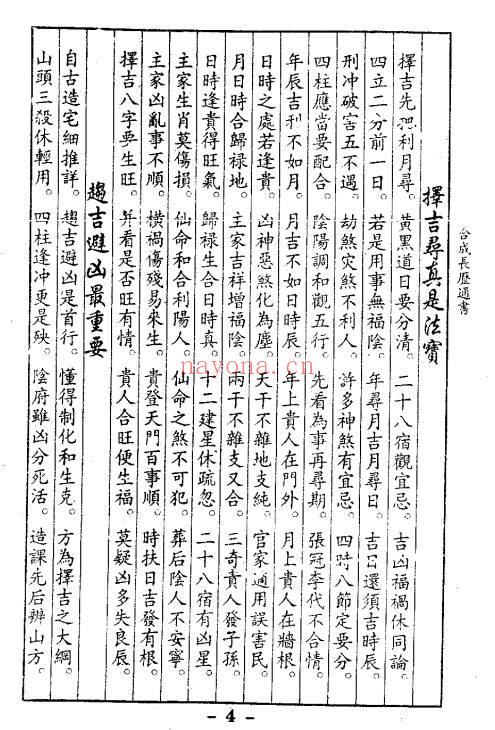 合成長歷通書
擇吉尋真是法寶
擇吉先把利月尋。黃黑道日要分清。二十八宿觀宜忌。吉凶福禍休同論。
四立二分前一日。若是用事無福陰。年尋月吉月尋日。吉日還須吉時辰。
刑冲破害五不遇。劫煞灾煞不利人。許多神煞有宜忌。四時八節定要分。
四柱應當要配合。陰陽調和觀五行。先看為事再尋期。張冠李代不合情。
年辰吉利不如月。月吉不如日時辰。年上貴人在門外。月上貴人在牆根。
日時之處若逢貴。凶神惡煞化為塵。天干不雜地支純。官家通用誤害民。
月日時合歸祿地。主家吉祥增福陰。兩干不雜支又合。三奇貴人發子孫。
日時逢貴得旺氣。歸祿生合日時真。十二建星休疏忽。二十八宿有凶星。
主家生肖莫傷損。仙命和合利陽人。仙命之煞不可犯。葬后陰人不安寧。
主家凶亂事不順。橫禍傷殘易來生。貴登天門百事順。時扶日吉發有根。
擇吉八字要生旺。并看是否旺有情。貴人合旺便生福。莫疑凶多失良辰。
趨吉避凶最重要
自古造宅細推詳。趨吉避凶是首行。懂得制化和生克。方為擇吉之大綱。
山頭三殺休輕用。四柱逢冲更是殃。陰府雖凶分死活。造課先后辨山方。
- 4 -
nayona.cn